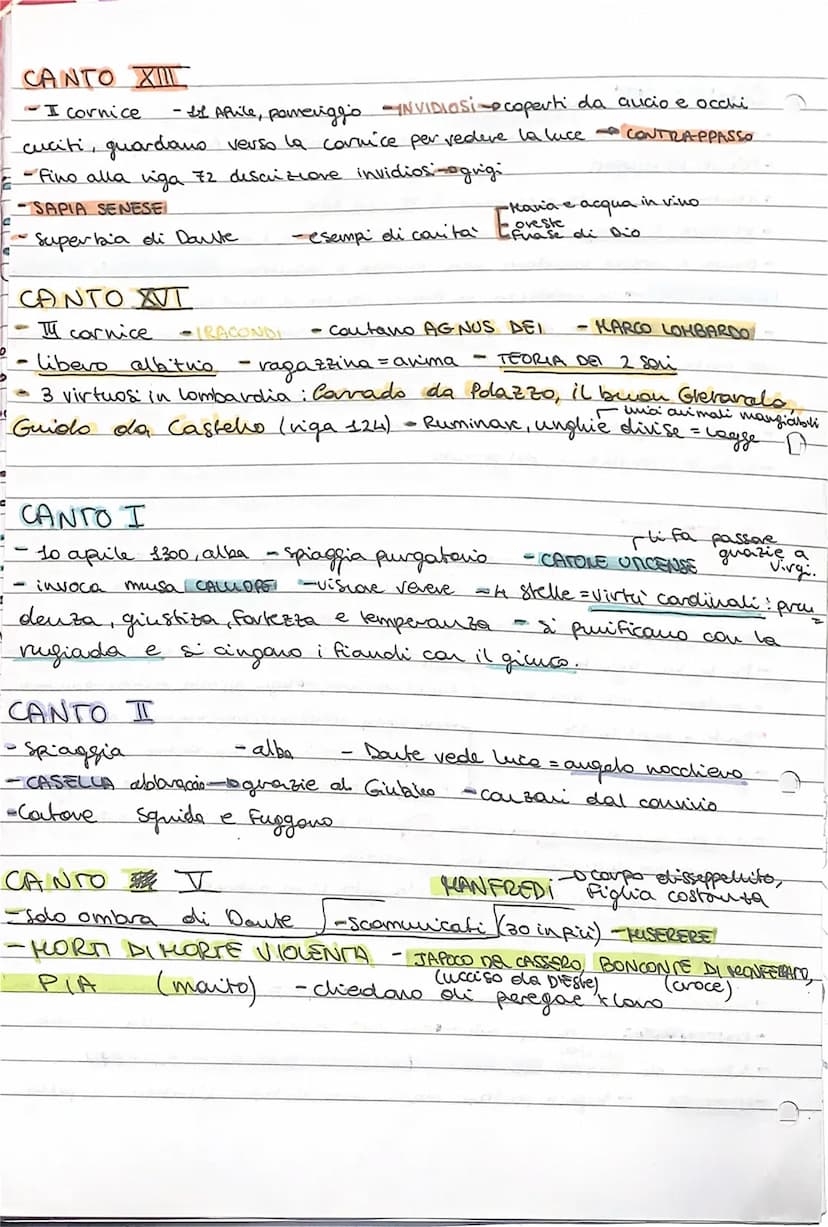 CANTO XIII
- I cornice - 11 Aprile, pomeriggio - INVIDIOSI → coperti da cilicio e occhi
cuciti, guardano verso la cornice per vedere la luce → CONTRAPPASSO
- Fino alla riga 72 descrizione invidiosi → grigi
- SAPIA SENESE
- Maria e acqua in vino
- oreste
- superbia di Dante - esempi di carità
- frase di Dio
CANTO XVI
- III cornice - IRACONDI - cantano AGNUS DEI - MARCO LOMBARDO
- libero albitrio - ragazzina = anima - TEORIA DEI 2 SOLI
- 3 virtuosi in lombardia: Corrado da Polazzo, il buon Gherardo,
unici animali mangiabili
Guido da Castello (riga 124) - Ruminare, unghie divise = Legge
CANTO I
li fa passare
- 10 aprile 1300, alba - spiaggia purgatorio - CATONE UTICENSE grazie a
Virgi.
- invoca musa CALLIOPE - visione venere → 4 stelle = virtù cardinali: pru=
denza, giustizia, fortezza e temperanza - si purificano con la
rugiada e si cingono i fianchi con il giunco.
CANTO II
- Spiaggia - alba - Dante vede luce = angelo nocchiero
- CASELLA abbraccio → grazie al Giubileo - canzoni dal convivio
- Catone sgrida e fuggono
CANTO V
MANFREDI → corpo disseppellito,
figlia costanza
- Solo ombra di Dante - scomunicati (30 in più) - MISERERE
- MORTI DI MORTE VIOLENTA - JAPOCO DEL CASSERO, BONCONTE DI MONFELTRO,
(ucciso da D'Este) (croce)
PIA (marito) - chiedono di peregae x loro